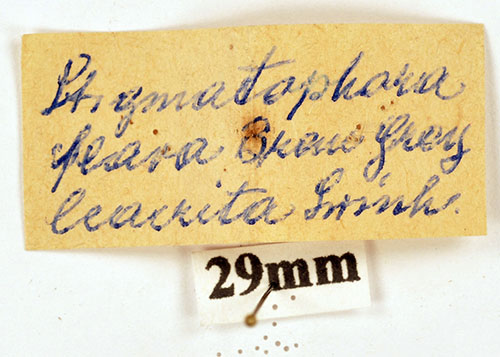 Stigmatophora
flava Grey
leacrita Swinh.
29mm